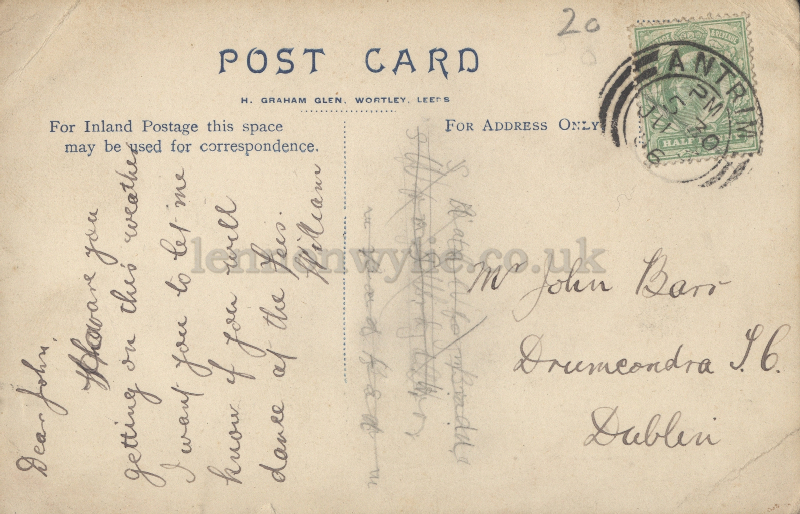 20
POST CARD
H. GRAHAM GLEN, WORTLEY, LEEDS
For Inland Postage this space
may be used for correspondence.
For Address Only
ANTRIM
PM
JU 5
06
HALF
Dear John,
How are you
getting on this weather
I want you to let me
know if you will
dance at the Feis.
William
Mr John Barr
Drumcondra T. C.
Dublin
lennonwylie.co.uk